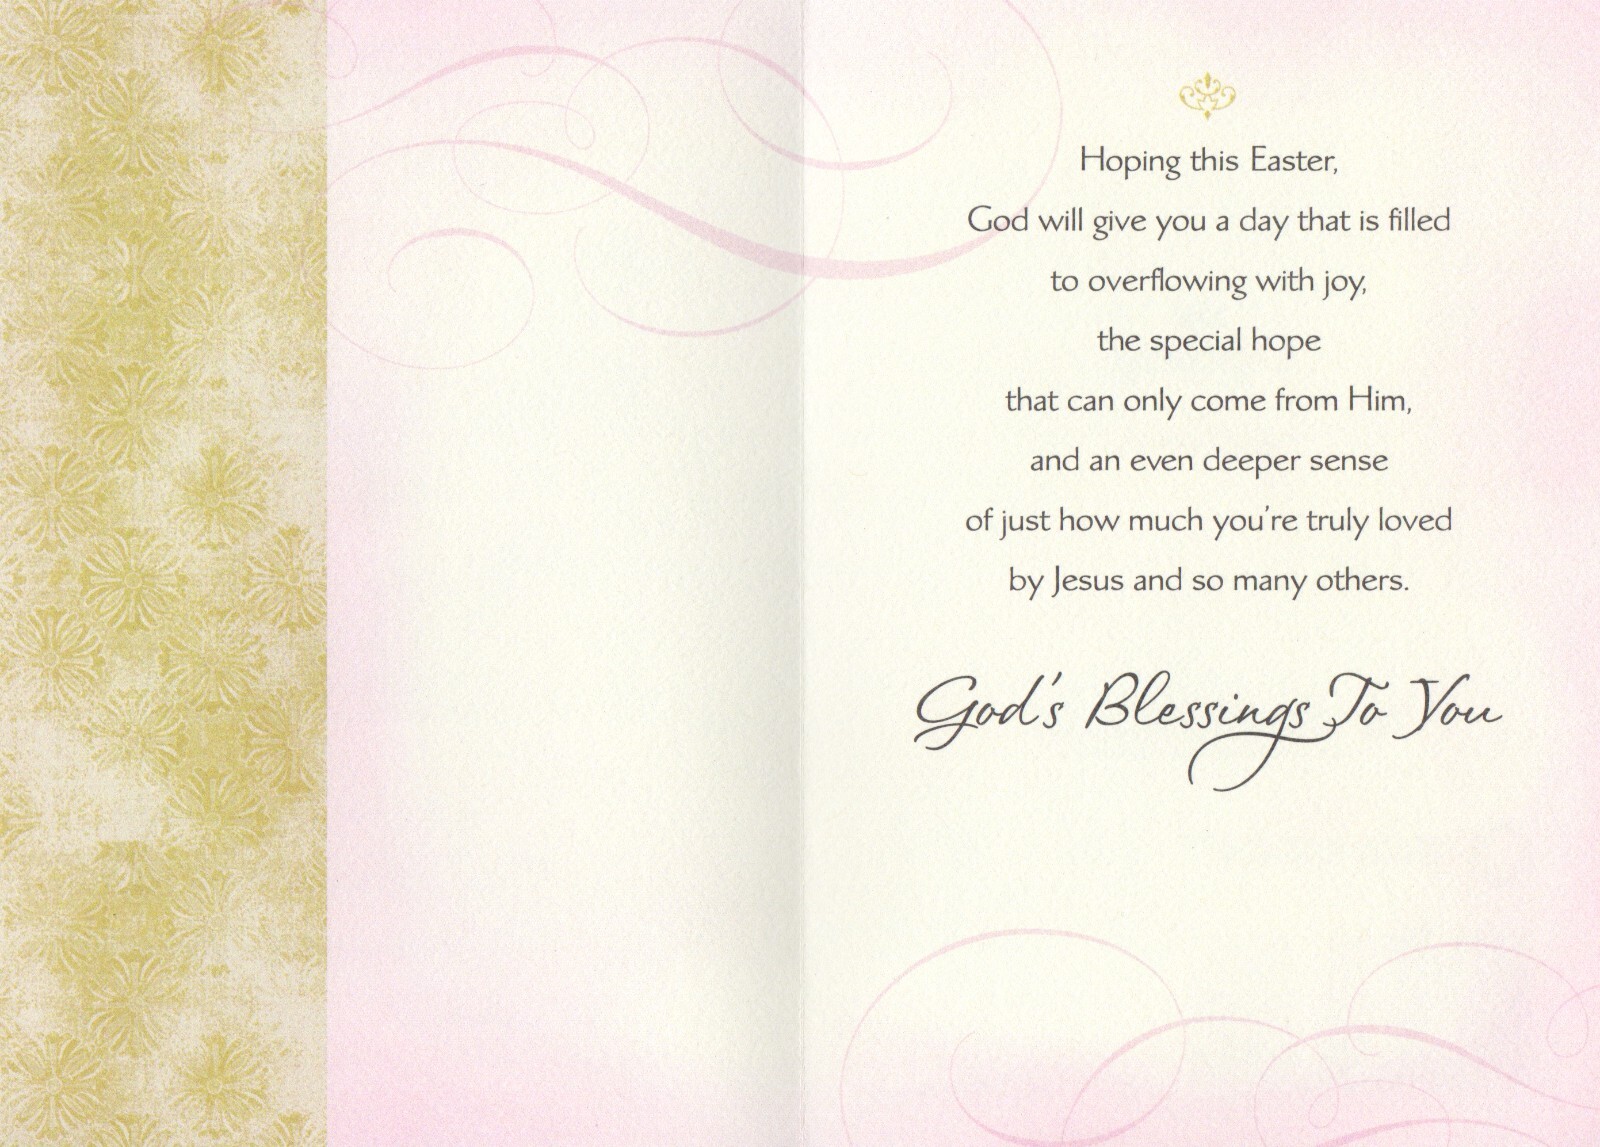 Hoping this Easter,
God will give you a day that is filled
to overflowing with joy,
the special hope
that can only come from Him,
and an even deeper sense
of just how much you're truly loved
by Jesus and so many others.
God's Blessings To You